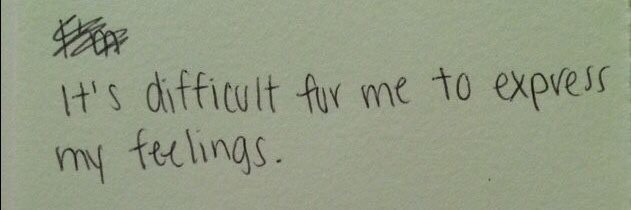 It's difficult for me to express
my feelings.